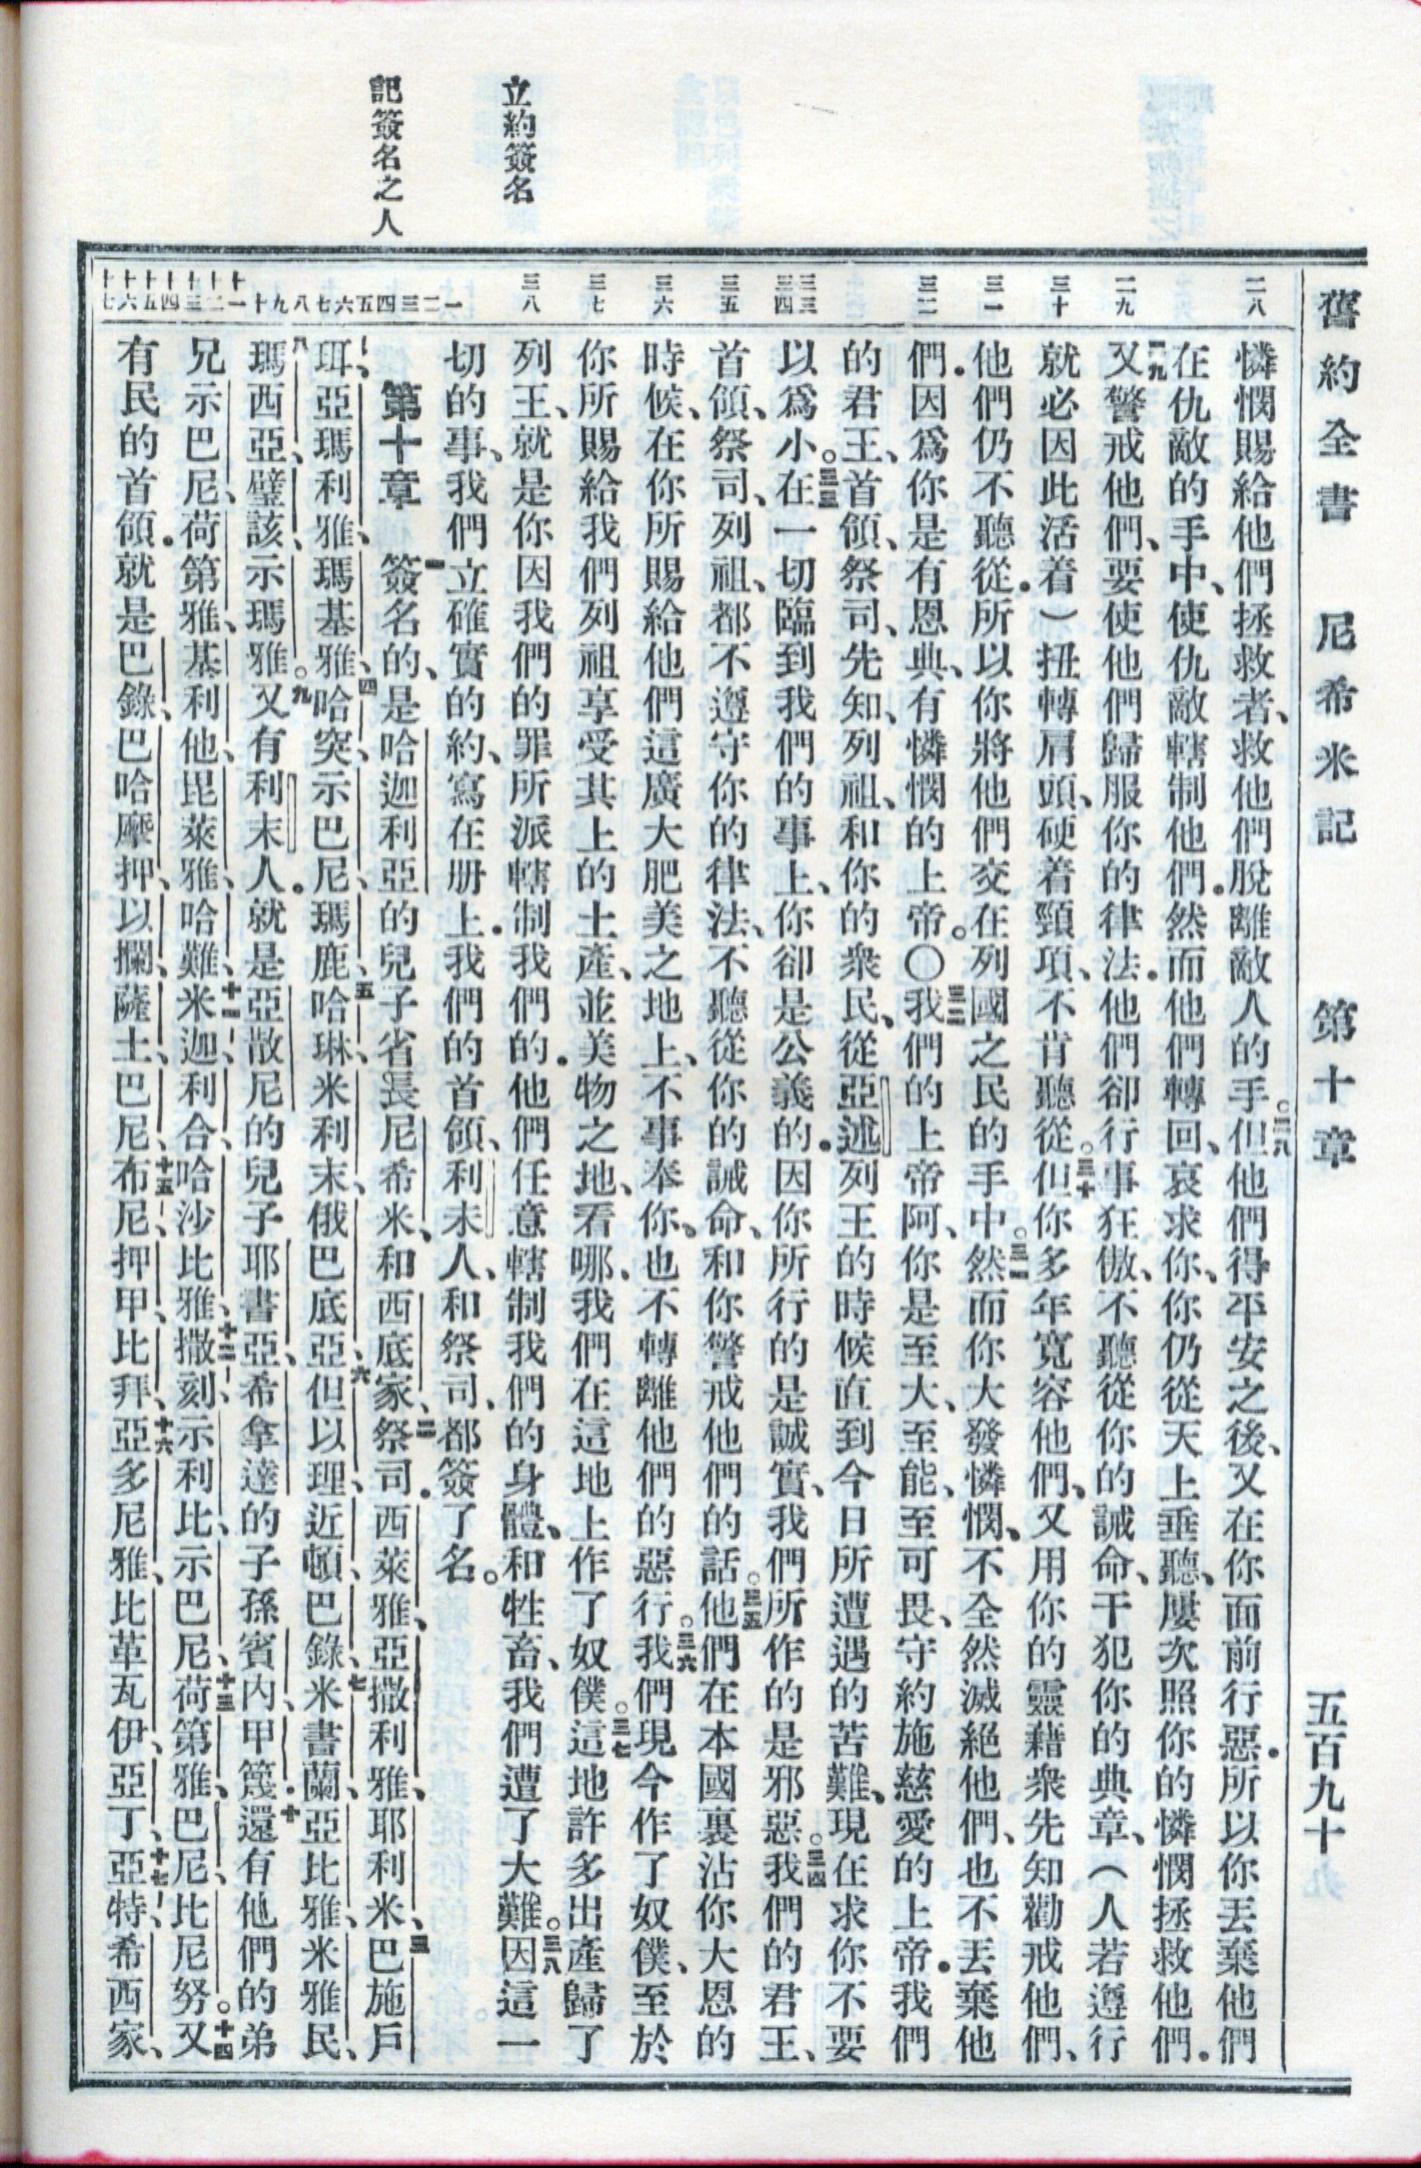 舊約全書 尼希米記 第十章 五百九十
立約簽名
記簽名之人
二八 二九 三十 三一 三二 三三 三四 三五 三六 三七 三八 一 二 三 四 五 六 七 八 九 十 十一 十二 十三 十四 十五 十六 十七
憐憫賜給他們拯救者、救他們脫離敵人的手。二八但他們得平安之後、又在你面前行惡．所以你丟棄他們
在仇敵的手中、使仇敵轄制他們．然而他們轉回、哀求你、你仍從天上垂聽、屢次照你的憐憫拯救他們．
二九又警戒他們、要使他們歸服你的律法．他們卻行事狂傲、不聽從你的誡命、干犯你的典章、（人若遵行
就必因此活着）扭轉肩頭、硬着頸項、不肯聽從。三十但你多年寬容他們、又用你的靈藉衆先知勸戒他們、
他們仍不聽從．所以你將他們交在列國之民的手中。三一然而你大發憐憫、不全然滅絕他們、也不丟棄他
們．因爲你是有恩典、有憐憫的上帝。○三二我們的上帝阿、你是至大、至能、至可畏、守約施慈愛的上帝．我們
的君王、首領、祭司、先知、列祖、和你的衆民、從亞述列王的時候直到今日所遭遇的苦難、現在求你不要
以爲小。三三在一切臨到我們的事上、你卻是公義的．因你所行的是誠實、我們所作的是邪惡。三四我們的君王、
首領、祭司、列祖、都不遵守你的律法、不聽從你的誡命、和你警戒他們的話。三五他們在本國裏沾你大恩的
時候、在你所賜給他們這廣大肥美之地上、不事奉你、也不轉離他們的惡行。三六我們現今作了奴僕、至於
你所賜給我們列祖享受其上的土產、並美物之地、看哪、我們在這地上作了奴僕。三七這地許多出產歸了
列王、就是你因我們的罪所派轄制我們的．他們任意轄制我們的身體、和牲畜、我們遭了大難。三八因這一
切的事、我們立確實的約、寫在册上．我們的首領、利未人、和祭司、都簽了名。
第十章 一簽名的、是哈迦利亞的兒子省長尼希米、和西底家、二祭司．西萊雅、亞撒利雅、耶利米、三巴施戶
珥、亞瑪利雅、瑪基雅、四哈突、示巴尼、瑪鹿、五哈琳、米利末、俄巴底亞、六但以理、近頓、巴錄、七米書蘭、亞比雅、米雅民、
八瑪西亞、璧該、示瑪雅。九又有利未人．就是亞散尼的兒子耶書亞、希拿達的子孫賓內、甲篾．十還有他們的弟
兄示巴尼、荷第雅、基利他、毘萊雅、哈難、十一米迦、利合、哈沙比雅、十二撒刻、示利比、示巴尼、十三荷第雅、巴尼、比尼努。十四又
有民的首領．就是巴錄、巴哈摩押、以攔、薩土、巴尼、十五布尼、押甲、比拜、十六亞多尼雅、比革瓦伊、亞丁、十七亞特、希西家、